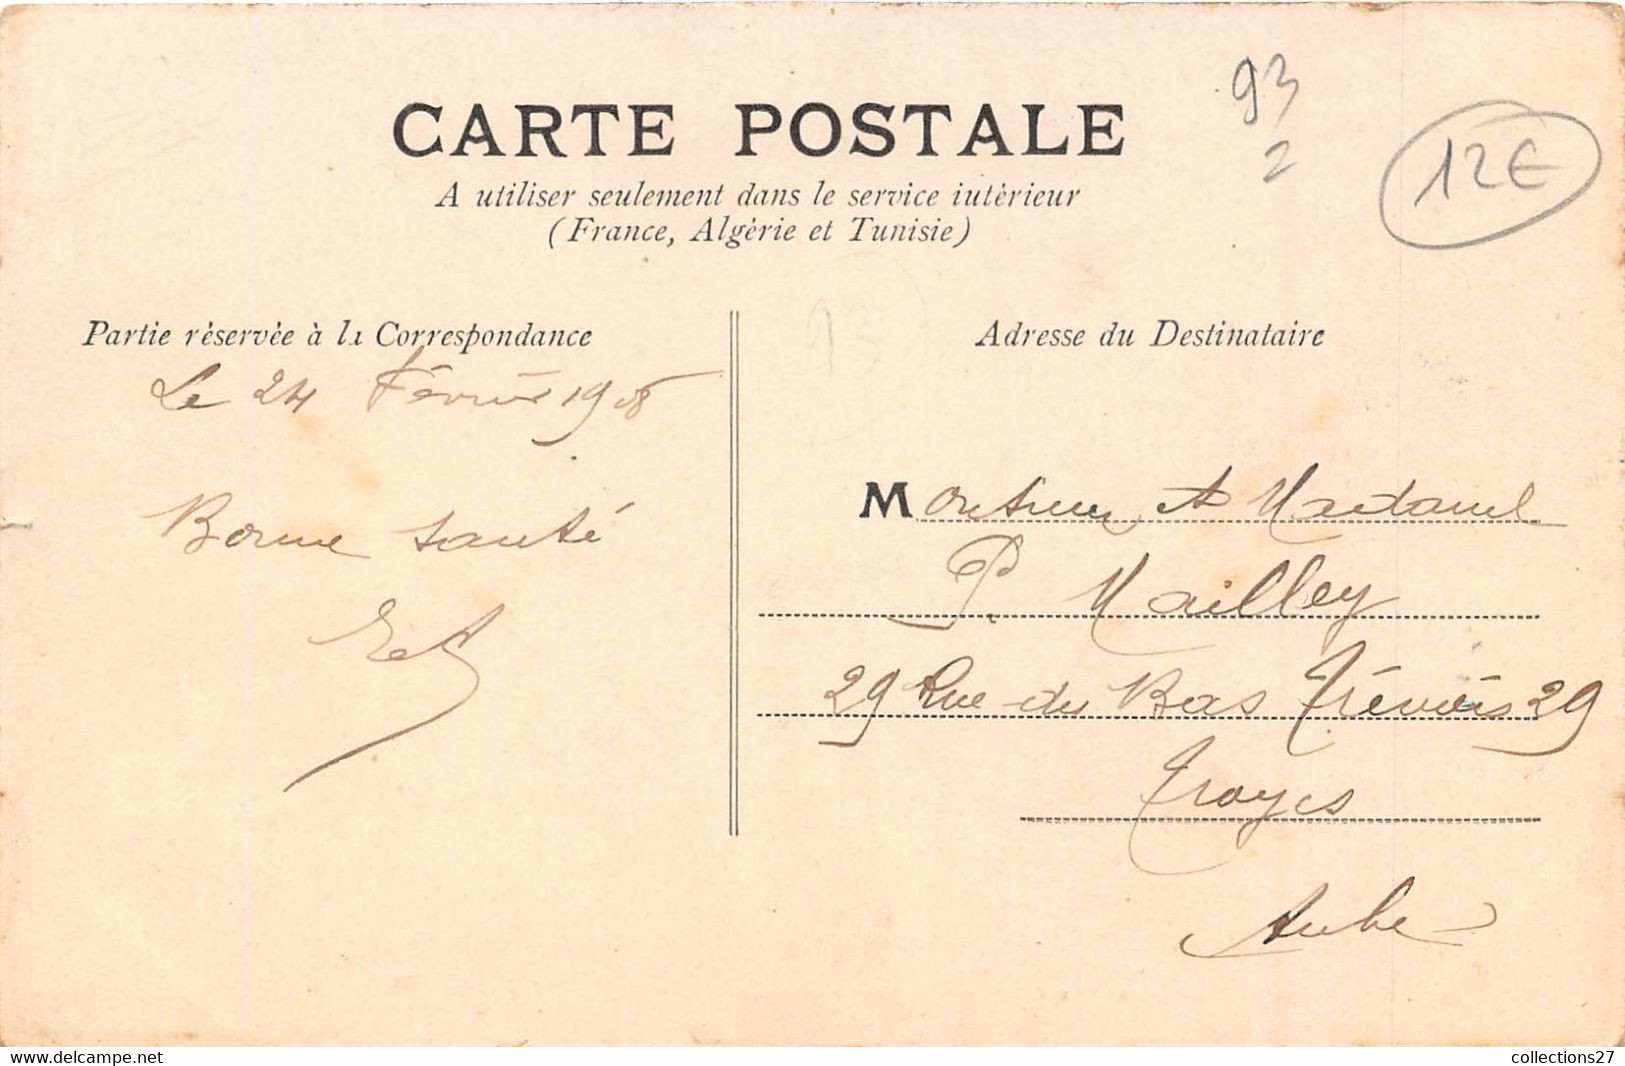 93
2
12€
CARTE POSTALE
A utiliser seulement dans le service intérieur
(France, Algérie et Tunisie)
93
Partie réservée à la Correspondance
Le 24 Février 1908
Bonne santé
Adresse du Destinataire
Monsieur et Madame
P. Mailley
29 Rue du Bas Trévois 29
Troyes
Aube
www.delcampe.net
collections27